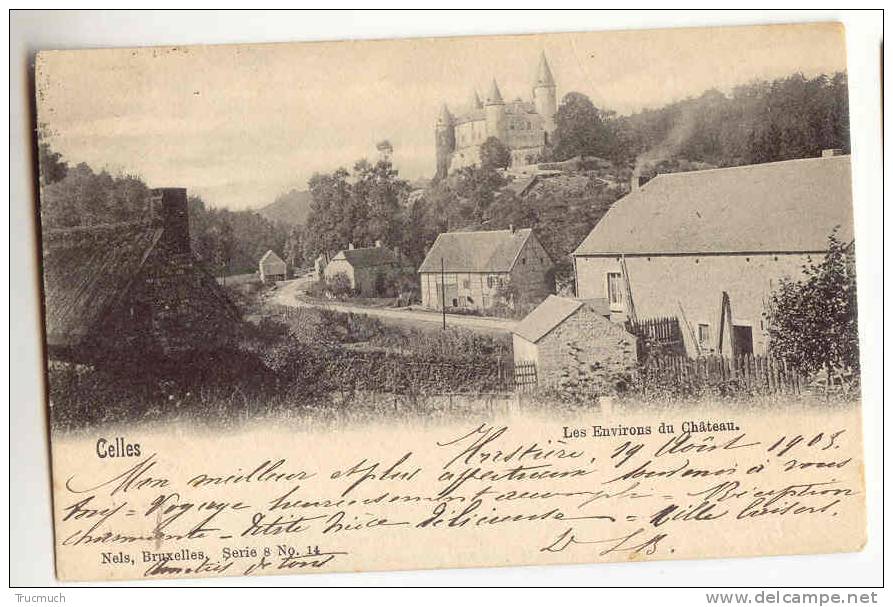 Les Environs du Château.
Celles
Hastière, 19 Août 1903.
Mon meilleur et plus affectueux souvenir à vous
Voyage heureusement accompli = Réception
charmante = Petite nièce délicieuse = Mille baisers.
Nels, Bruxelles, Serie 8 No. 14
Amitiés de tous
Trucmuch
www.delcampe.net